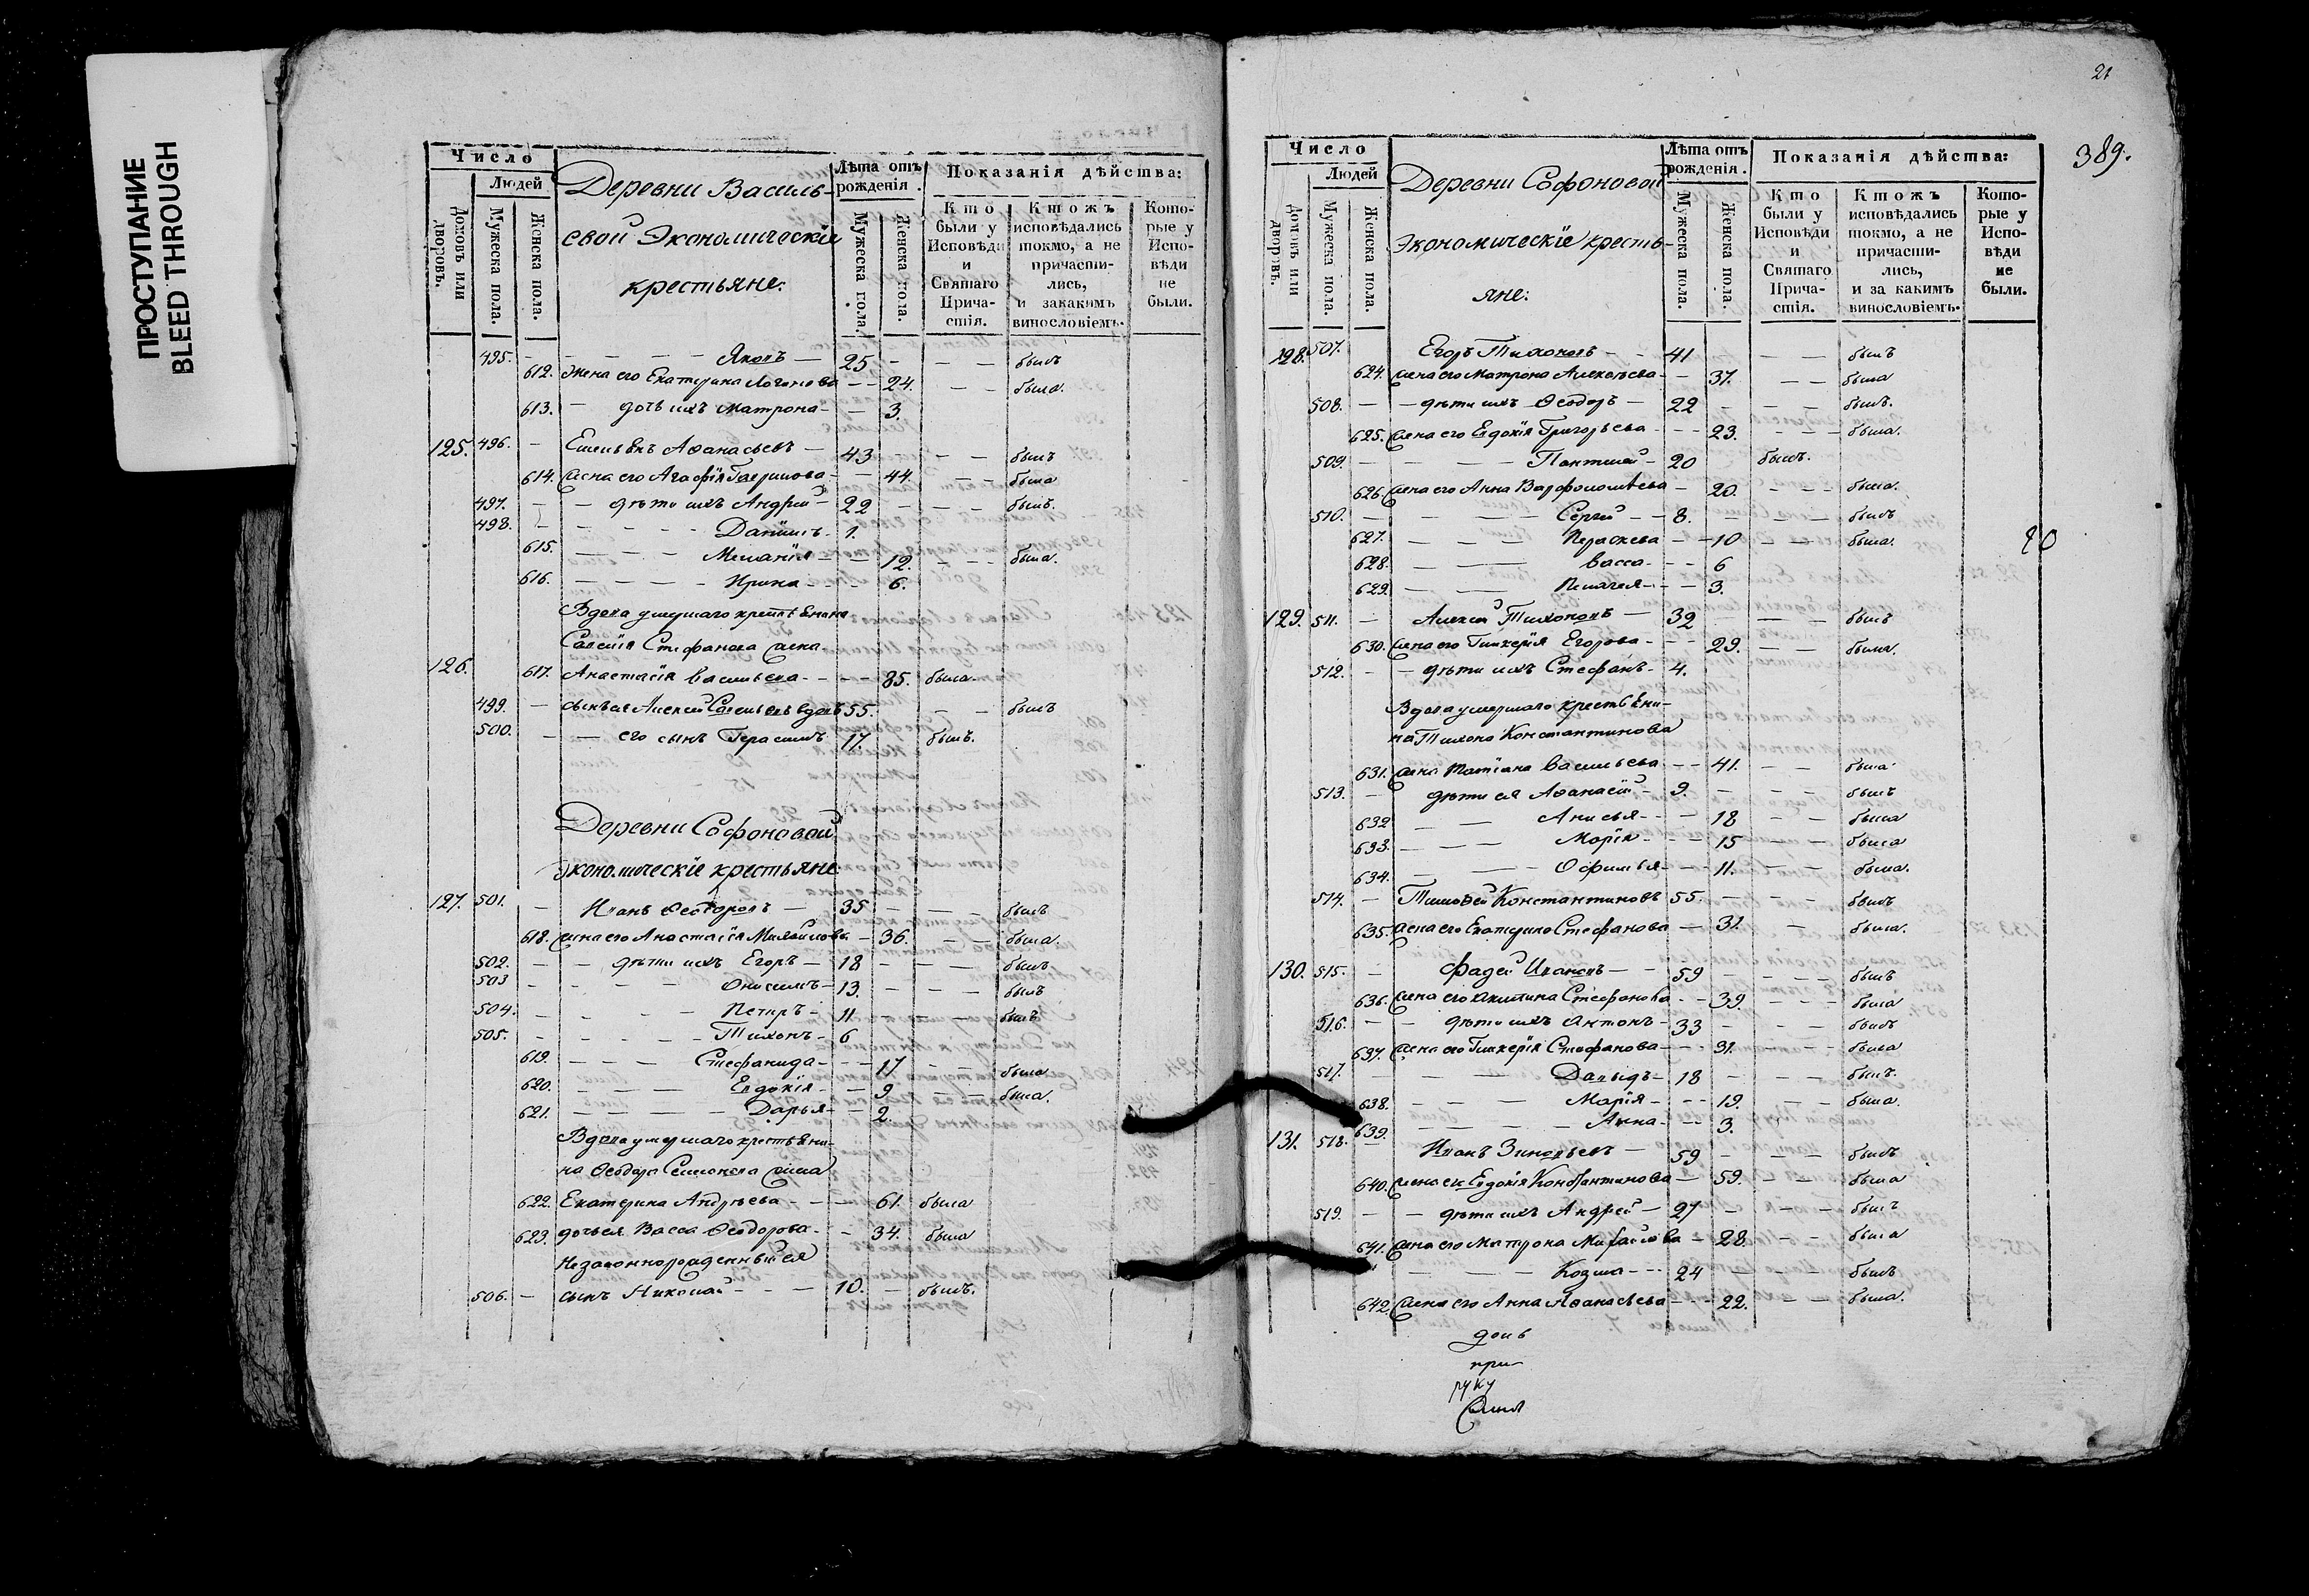 ПРОСТУПАНИЕ
BLEED THROUGH
Число
Людей
Домовъ или дворовъ.
Мужеска пола.
Женска пола.
Деревни Василь-
евой Экономическіе
крестьяне:
Лѣта отъ рожденія.
Мужеска пола.
Женска пола.
Показанія дѣйства:
Кто были у Исповѣди и Святаго Причастія.
Ктожъ исповѣдались токмо, а не причастились, и закакимъ винословіемъ.
Которые у Исповѣди не были.
495. Яковъ 25 былъ
612. жена его Екатерина Логинова 24. была.
613. дочь ихъ Матрона 3.
125. 496. Емельянъ Аѳанасьевъ 43 былъ
614. жена его Агафія 44. была
497. дѣти ихъ Андрей 22 былъ.
498. Даніилъ 1.
615. Меланія 12. была.
616. Ирина 6.
Вдова умершаго крестьянина
Савелія Стефанова жена
126. 617. Анастасія Васильева 85. была.
499. сынъ ея Алексей Савельевъ вдовъ 55. былъ
500. его сынъ Герасимъ 17. былъ.
Деревни Софоновой
экономическіе крестьяне.
127. 501. Иванъ Ѳеодоровъ 35 былъ
618. жена его Анастасія Михайлова 36. была.
502. дѣти ихъ Егоръ 18 былъ
503 Онисимъ 13. былъ
504. Петръ 11 былъ
505. Тихонъ 6
619. Стефанида 17 была
620. Евдокія 9 была.
621. Дарья 2.
Вдова умершаго крестьяни-
на Ѳеодора Семионова жена
622. Екатерина Андреева 61. была
623. дочь ея Васса Ѳеодорова 34. была
Незаконнорожденный ея
506. сынъ Николай 10. былъ.
21
389.
Число
Людей
Домовъ или дворовъ.
Мужеска пола.
Женска пола.
Деревни Софоновой
Экономическіе кресть-
яне:
Лѣта отъ рожденія.
Мужеска пола.
Женска пола.
Показанія дѣйства:
Кто были у Исповѣди и Святаго Причастія.
Ктожъ исповѣдались токмо, а не причастились, и за какимъ винословіемъ.
Которые у Исповѣди не были.
128. 507. Егоръ Тихоновъ 41 былъ
624. жена его Матрона Алексѣева 37. была
508. дѣти ихъ Ѳеодоръ 22 былъ.
625. жена его Евдокія Григорьева 23. была.
509. 20 былъ.
626. жена его Анна Варфоломѣева 20. была.
510. Сергей 8. былъ
627. Параскева 10 была.
628. Васса 6
629. Пелагея 3.
129. 511. Алексей Тихоновъ 32 былъ
630. жена его Гликерія Егорова 29. была.
512. дѣти ихъ Стефанъ 4.
Вдова умершаго крестьяни-
на Тихона Константинова
631. жена Татіана Васильева 41. была
513. дѣти ея Аѳанасій 9. былъ
632 Анисья 18 была
633. Марія 15 была
634. Офимья 11. была.
514. Тимоѳей Константиновъ 55. былъ
635. жена его Екатерина Стефанова 31. была.
130. 515. Фадей Ивановъ 59 былъ
636. жена его Акилина Стефанова 39. была
516. дѣти ихъ Антонъ 33 былъ
637. жена его Гликерія Стефанова 31. была
517. Давыдъ 18 былъ
638. Марія 19. была.
639. Анна 3.
131. 518. Иванъ Зиновьевъ 59 былъ
640. жена его Евдокія Константинова 59. была
519. дѣти ихъ Андрей 27 былъ
641. жена его Матрона Михайлова 28. была
Козма 24 былъ
642. жена его Анна Аѳанасьева 22. была.
при
руку